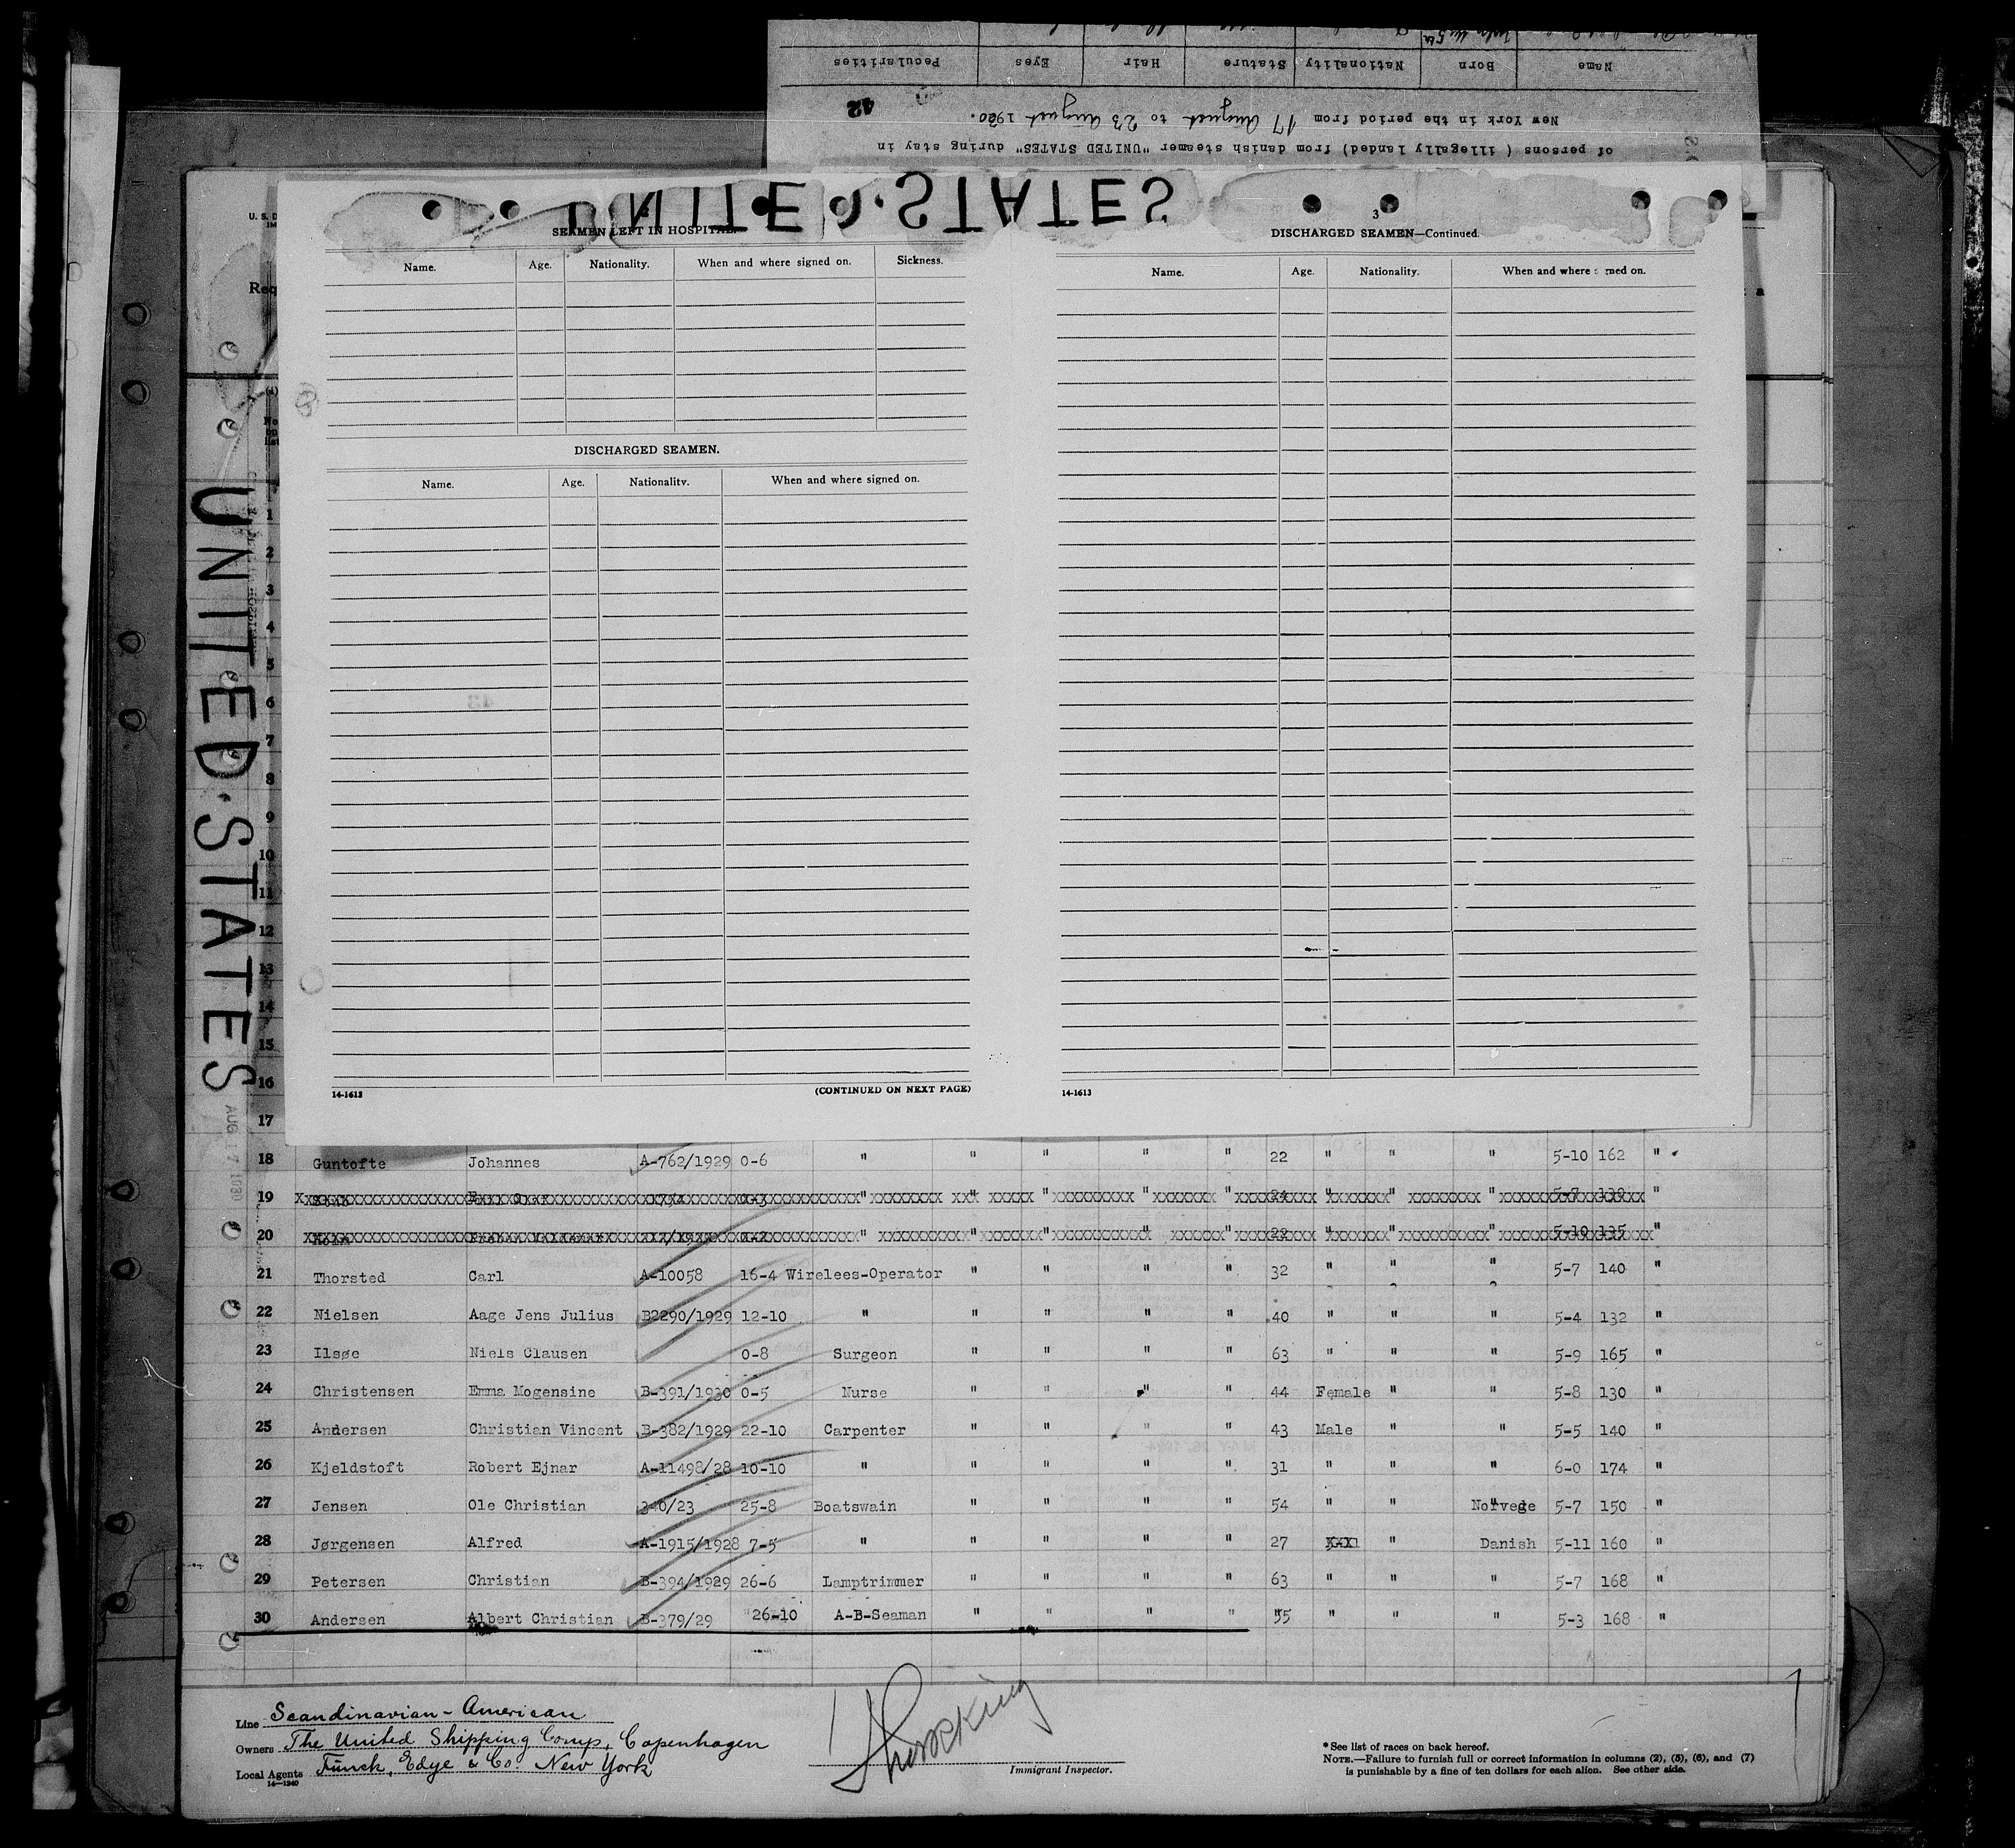 Name Born Nationality Stature Hair Eyes Pecularities
New York in the period from 17 August to 23 August 1930.
42
of persons ( illegally landed) from danish steamer "UNITED STATES" during stay in
UNITED. STATES
U. S. D
Req
SEAMEN LEFT IN HOSPITAL.
Name. Age. Nationality. When and where signed on. Sickness.
DISCHARGED SEAMEN.
Name. Age. Nationality. When and where signed on.
14-1613 (CONTINUED ON NEXT PAGE)
3
DISCHARGED SEAMEN—Continued.
Name. Age. Nationality. When and where signed on.
14-1613
UNITED. STATES
1
2
3
4
5
6
7
8
9
10
11
12
13
14
15
16
17
18 Guntofte Johannes A-762/1929 0-6 " " " " " 22 " " " 5-10 162 "
19 0-3 " " " " " 24 " " " 5-7 130 "
20 0-2 " " " " 22 " " " 5-10 135 "
21 Thorsted Carl A-10058 16-4 Wirelees-Operator " " " " 32 " " " 5-7 140 "
22 Nielsen Aage Jens Julius B2290/1929 12-10 " " " " " 40 " " " 5-4 132 "
23 Ilsøe Niels Clausen 0-8 Surgeon " " " " 63 " " " 5-9 165 "
24 Christensen Emma Mogensine B-391/1930 0-5 Nurse " " " " 44 Female " " 5-8 130 "
25 Andersen Christian Vincent B-382/1929 22-10 Carpenter " " " " 43 Male " " 5-5 140 "
26 Kjeldstoft Robert Ejnar A-11498/28 10-10 " " " " " 31 " " " 6-0 174 "
27 Jensen Ole Christian 340/23 25-8 Boatswain " " " " 54 " " Norvege 5-7 150 "
28 Jørgensen Alfred A-1915/1928 7-5 " " " " " 27 " Danish 5-11 160 "
29 Petersen Christian B-394/1929 26-6 Lamptrimmer " " " " 63 " " " 5-7 168 "
30 Andersen Albert Christian B-379/29 "26-10 A-B-Seaman " " " " 55 " " " 5-3 168 "
Line Scandinavian-American
Owners The United Shipping Comp, Copenhagen
Local Agents Funch, Edye & Co. New York
14-1240
Immigrant Inspector.
* See list of races on back hereof.
NOTE.—Failure to furnish full or correct information in columns (2), (5), (6), and (7)
is punishable by a fine of ten dollars for each alien. See other side.